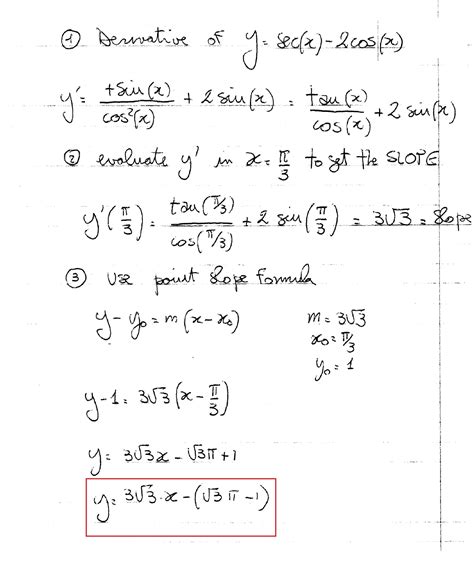 ① Derivative of y = sec(x) - 2cos(x)
y' = +sin(x)/cos²(x) + 2 sin(x) = tan(x)/cos(x) + 2 sin(x)
② evaluate y' in x = π/3 to get the SLOPE
y'(π/3) = tan(π/3)/cos(π/3) + 2 sin(π/3) = 3√3 = Slope
③ Use point slope Formula
y - y₀ = m(x - x₀)    m = 3√3
x₀ = π/3
y₀ = 1
y - 1 = 3√3(x - π/3)
y = 3√3x - √3π + 1
y = 3√3·x - (√3 π - 1)